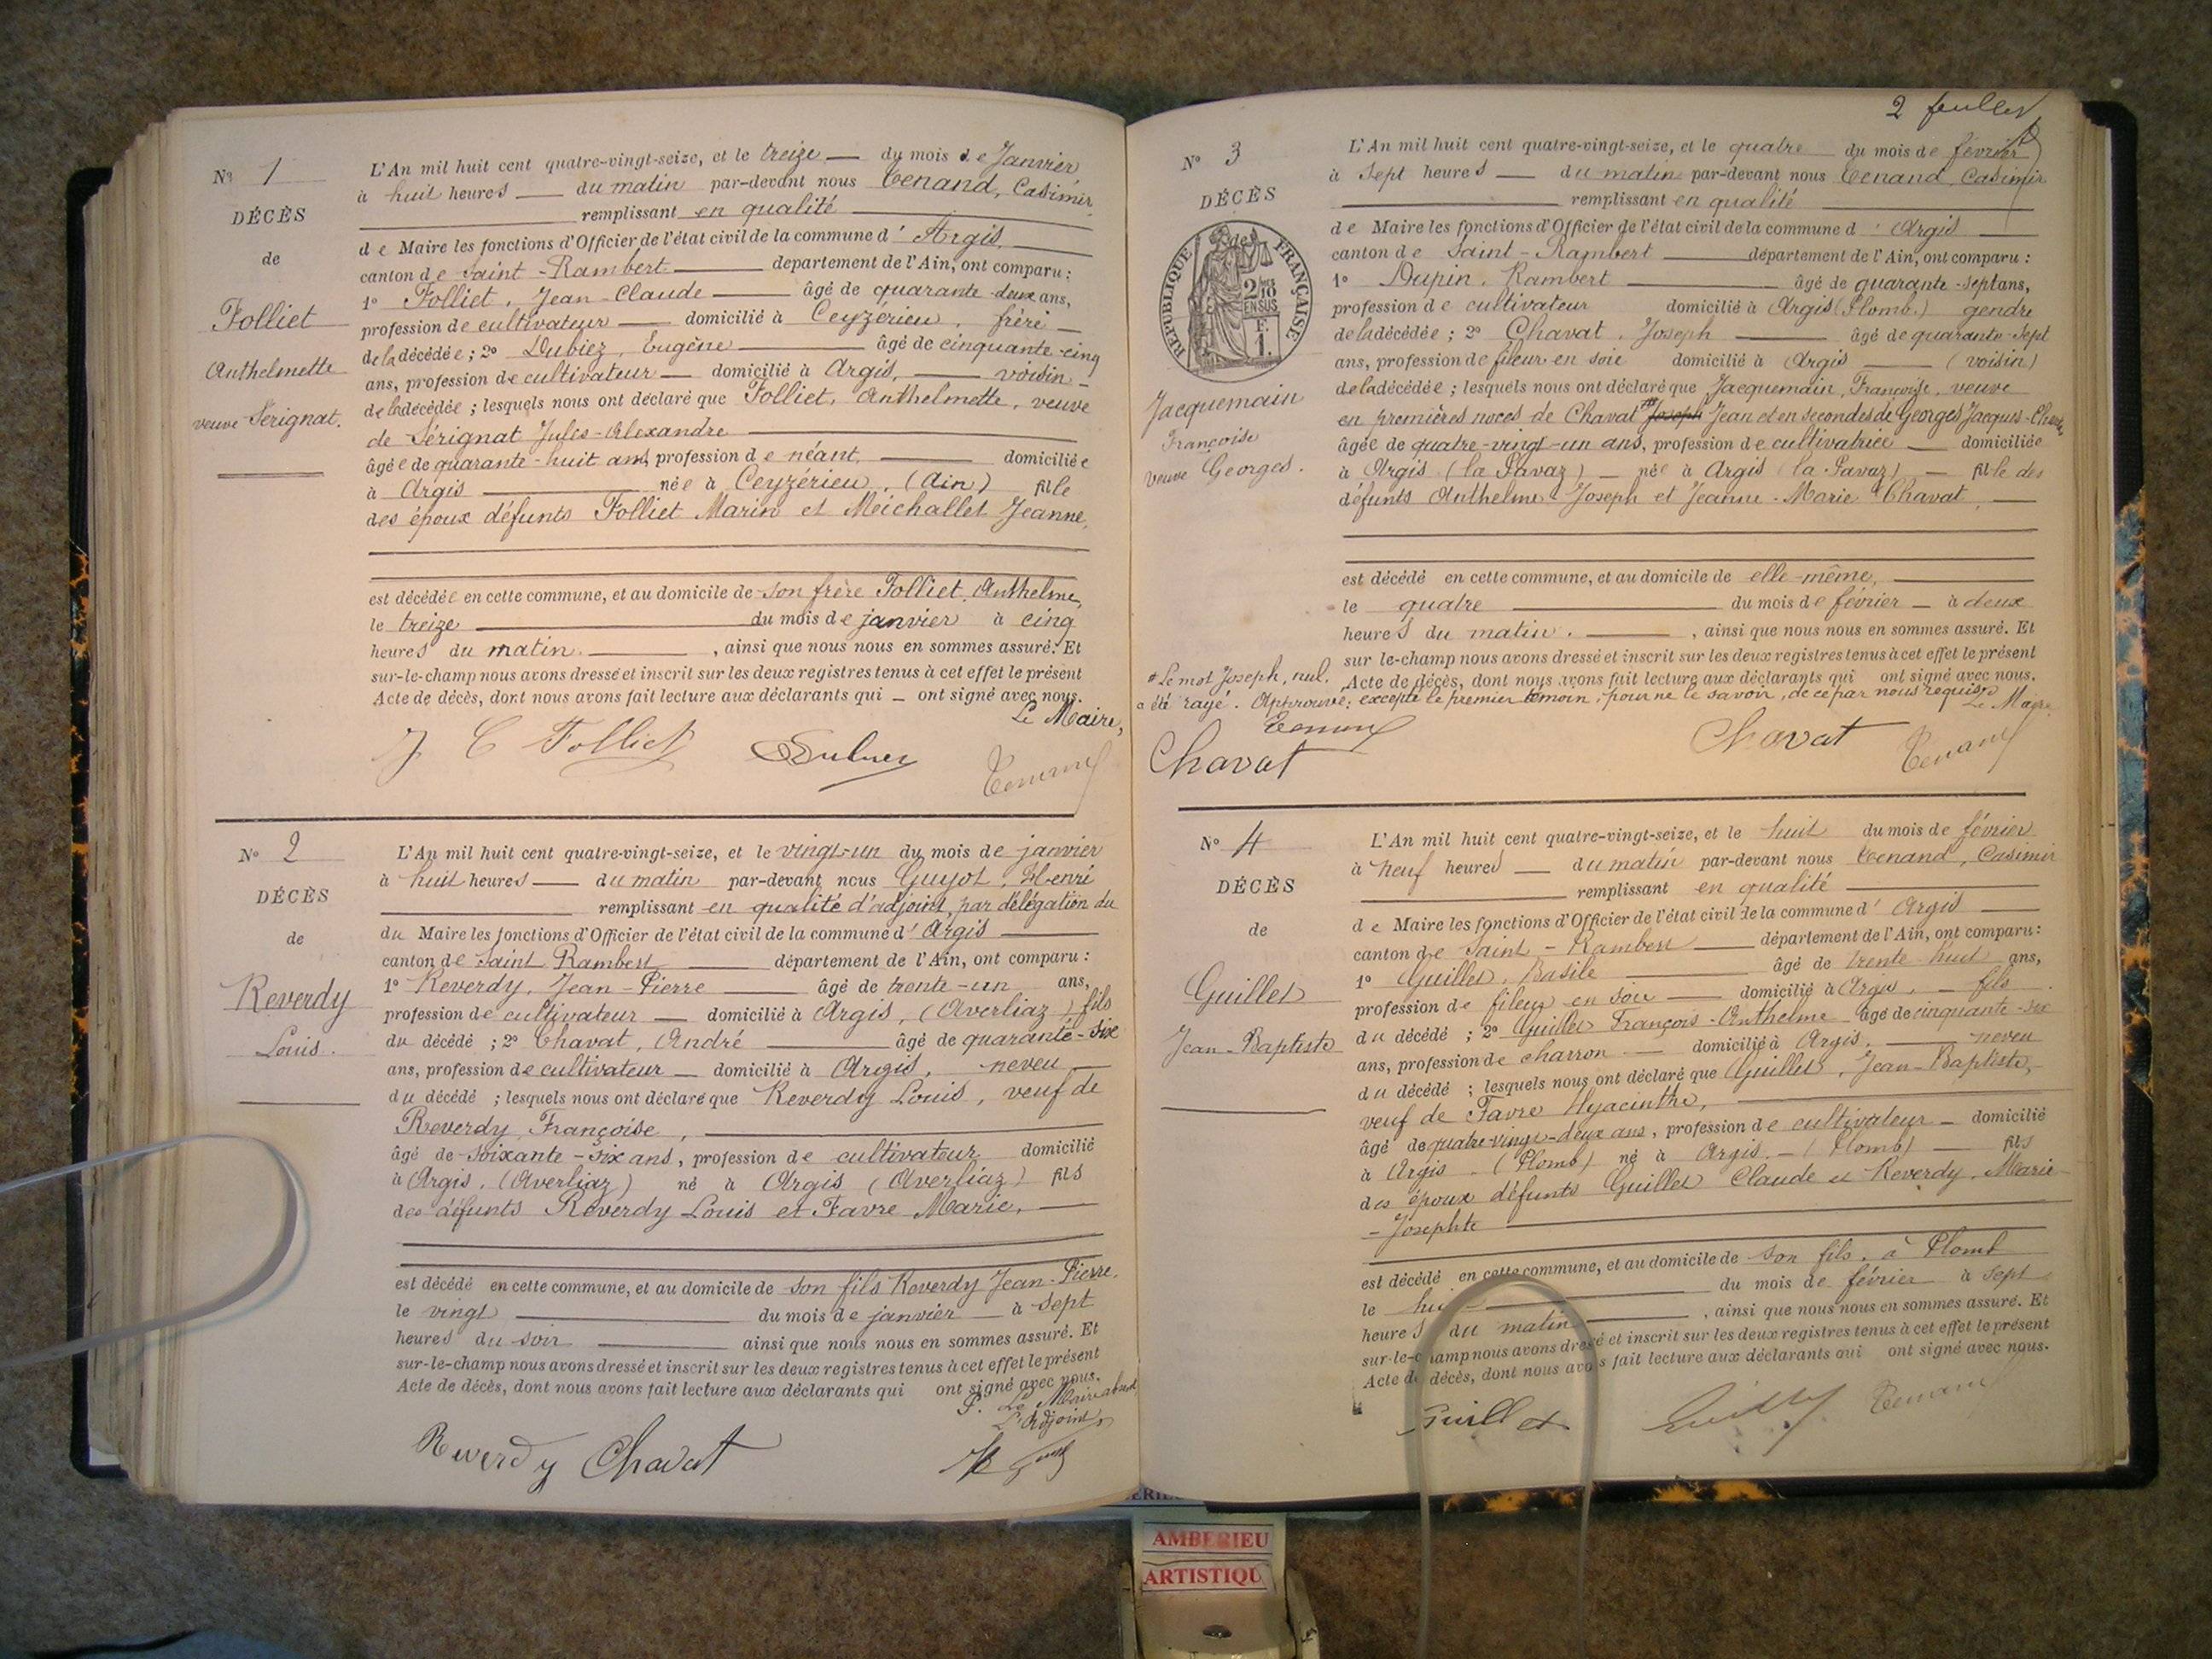 N° 1
DÉCÈS
de
Folliet
Anthelmette
veuve Sérignat.
L'An mil huit cent quatre-vingt-seize, et le treize du mois de Janvier
à huit heures du matin par-devant nous Tenand, Casimir
remplissant en qualité
de Maire les fonctions d'Officier de l'état civil de la commune d' Argis
canton de Saint-Rambert département de l'Ain, ont comparu :
1° Folliet, Jean-Claude âgé de quarante-deux ans,
profession de cultivateur domicilié à Ceyzérieu, frère
de la décédée ; 2° Dubiez, Eugène âgé de cinquante-cinq
ans, profession de cultivateur domicilié à Argis, voisin
de la décédée ; lesquels nous ont déclaré que Folliet, Anthelmette, veuve
de Sérignat Jules-Alexandre
âgée de quarante-huit ans, profession de néant, domiciliée
à Argis née à Ceyzérieu, (Ain) fille
des époux défunts Folliet Marin et Meichallet Jeanne,
est décédée en cette commune, et au domicile de son frère Folliet, Anthelme,
le treize du mois de janvier à cinq
heures du matin. , ainsi que nous nous en sommes assuré. Et
sur-le-champ nous avons dressé et inscrit sur les deux registres tenus à cet effet le présent
Acte de décès, dont nous avons fait lecture aux déclarants qui ont signé avec nous.
Le Maire,
J C Folliet Tenand
N° 2
DÉCÈS
de
Reverdy
Louis.
L'An mil huit cent quatre-vingt-seize, et le vingt-un du mois de janvier
à huit heures du matin par-devant nous Guyot, Henri
remplissant en qualité d'adjoint, par délégation du
du Maire les fonctions d'Officier de l'état civil de la commune d' Argis
canton de Saint Rambert département de l'Ain, ont comparu :
1° Reverdy, Jean-Pierre âgé de trente-un ans,
profession de cultivateur domicilié à Argis, (Averliaz) fils
du décédé ; 2° Chavat, André âgé de quarante-six
ans, profession de cultivateur domicilié à Argis, neveu
du décédé ; lesquels nous ont déclaré que Reverdy Louis, veuf de
Reverdy, Françoise,
âgé de soixante-six ans, profession de cultivateur domicilié
à Argis. (Averliaz) né à Argis (Averliaz) fils
des défunts Reverdy Louis et Favre Marie,
est décédé en cette commune, et au domicile de son fils Reverdy Jean-Pierre.
le vingt du mois de janvier à sept
heures du soir ainsi que nous nous en sommes assuré. Et
sur-le-champ nous avons dressé et inscrit sur les deux registres tenus à cet effet le présent
Acte de décès, dont nous avons fait lecture aux déclarants qui ont signé avec nous.
P. Le Maire absent
L'Adjoint
Reverdy Chavat
2 feuillet
N° 3
DÉCÈS
RÉPUBLIQUE FRANÇAISE
2/10 EN SUS
F. 1.
Jacquemain
Françoise
veuve Georges.
L'An mil huit cent quatre-vingt-seize, et le quatre du mois de février
à sept heures du matin par-devant nous Tenand, Casimir
remplissant en qualité
de Maire les fonctions d'Officier de l'état civil de la commune d' Argis
canton de Saint-Rambert département de l'Ain, ont comparu :
1° Dupin, Rambert âgé de quarante-sept ans,
profession de cultivateur domicilié à Argis (Plomb) gendre
de la décédée ; 2° Chavat, Joseph âgé de quarante-sept
ans, profession de fileur en soie domicilié à Argis (voisin)
de la décédée ; lesquels nous ont déclaré que Jacquemain, Françoise, veuve
en premières noces de Chavat Joseph Jean et en secondes de Georges Jacques-Charles
âgée de quatre-vingt-un ans, profession de cultivatrice domiciliée
à Argis (la Pavaz) née à Argis (la Pavaz) fille des
défunts Anthelme-Joseph et Jeanne-Marie Chavat,
est décédé en cette commune, et au domicile de elle-même,
le quatre du mois de février à deux
heures du matin. , ainsi que nous nous en sommes assuré. Et
sur-le-champ nous avons dressé et inscrit sur les deux registres tenus à cet effet le présent
Acte de décès, dont nous avons fait lecture aux déclarants qui ont signé avec nous.
excepté le premier témoin, pour ne le savoir, de ce par nous requis
Le Maire
Le mot Joseph, nul.
a été rayé. Approuvé;
Tenand
Chavat Chavat Tenand
N° 4
DÉCÈS
de
Guillet
Jean-Baptiste
L'An mil huit cent quatre-vingt-seize, et le huit du mois de février
à neuf heures du matin par-devant nous Tenand, Casimir
remplissant en qualité
de Maire les fonctions d'Officier de l'état civil de la commune d' Argis
canton de Saint-Rambert département de l'Ain, ont comparu :
1° Guillet, Basile âgé de trente-huit ans,
profession de fileur en soie domicilié à Argis, fils
du décédé ; 2° Guillet François-Anthelme âgé de cinquante-six
ans, profession de charron domicilié à Argis, neveu
du décédé ; lesquels nous ont déclaré que Guillet, Jean-Baptiste,
veuf de Favre Hyacinthe,
âgé de quatre-vingt-deux ans, profession de cultivateur domicilié
à Argis (Plomb) né à Argis (Plomb) fils
des époux défunts Guillet Claude et Reverdy, Marie
-Josephte
est décédé en cette commune, et au domicile de son fils, à Plomb
le huit du mois de février à sept
heures du matin , ainsi que nous nous en sommes assuré. Et
sur-le-champ nous avons dressé et inscrit sur les deux registres tenus à cet effet le présent
Acte de décès, dont nous avons fait lecture aux déclarants qui ont signé avec nous.
Guillet Tenand
AMBERIEU
ARTISTIQU